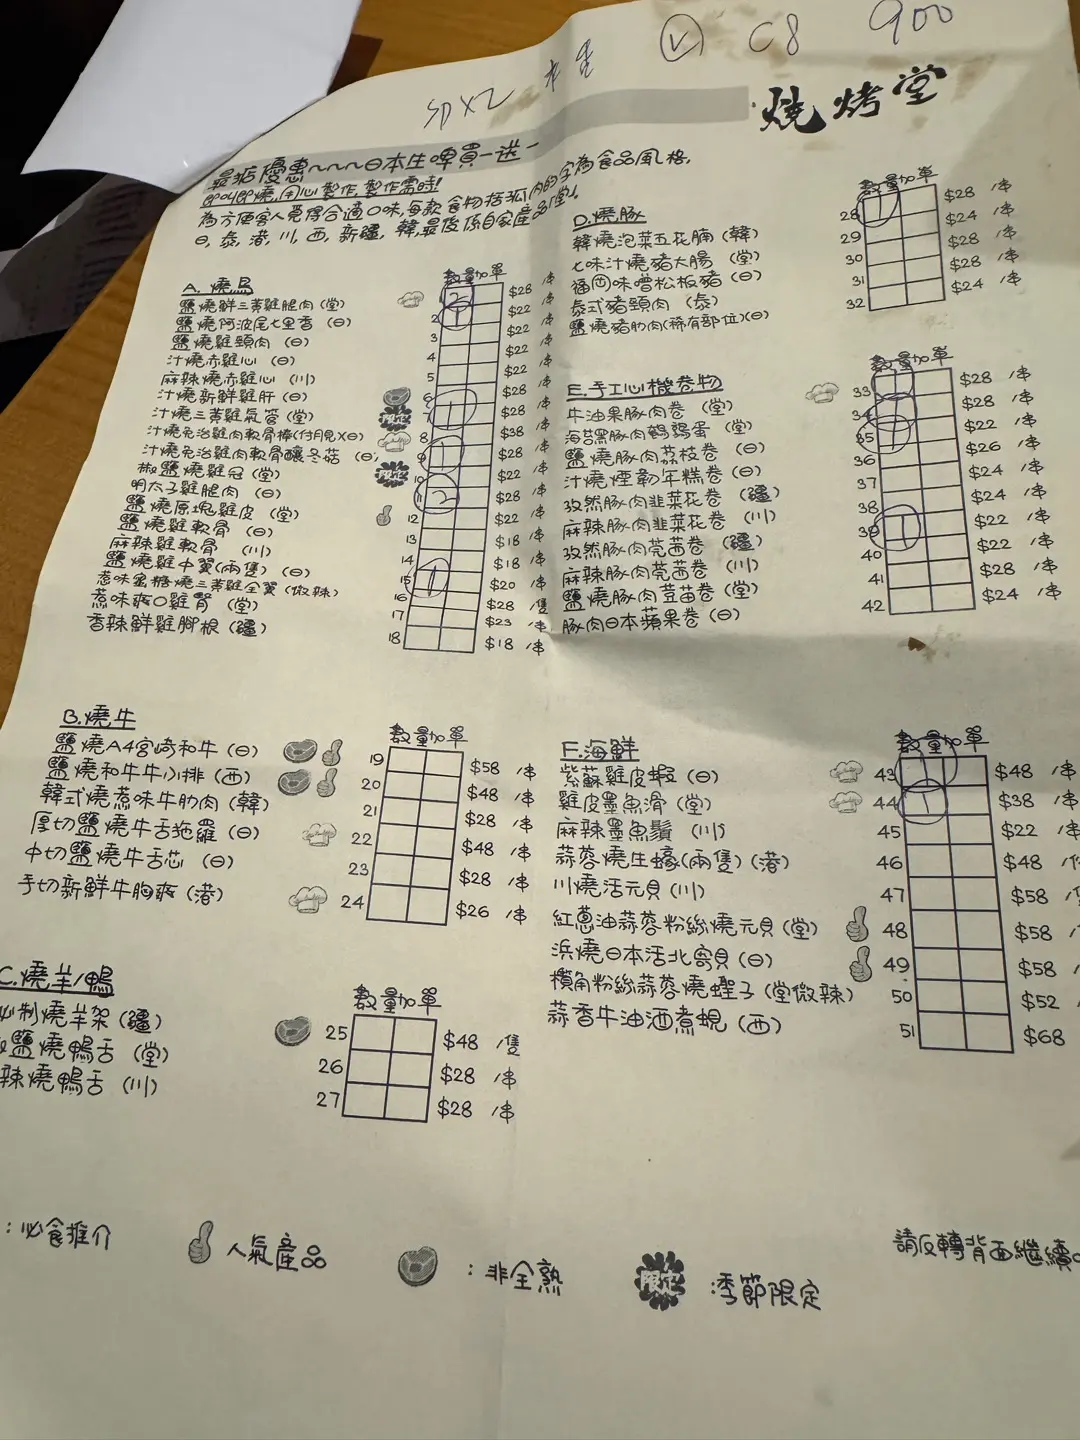 SD X2 C8 900
燒烤堂
最抵優惠~~~日本生啤買一送一
即叫即燒,用心製作,製作需時!
為方便客人覓得合適口味,每款食物括弧內的字為食品風格,
日,泰,港,川,西,新疆,韓,最後係自家產品(堂)!
A. 燒鳥 數量加單
鹽燒鮮三黃雞腿肉(堂) 1 2 $28 /串
鹽燒阿波尾七里香(日) 2 1 $22 /串
鹽燒雞頸肉(日) 3 $22 /串
汁燒赤雞心(日) 4 $22 /串
麻辣燒赤雞心(川) 5 $22 /串
汁燒新鮮雞肝(日) 6 $28 /串
汁燒三黃雞氣管(堂) 限定 7 1 $28 /串
汁燒免治雞肉軟骨棒(付月見)(日) 8 $38 /串
汁燒免治雞肉軟骨釀冬菇(日) 9 1 $28 /串
椒鹽燒雞冠(堂) 限定 10 $22 /串
明太子雞腿肉(日) 11 2 $28 /串
鹽燒原塊雞皮(堂) 12 $22 /串
鹽燒雞軟骨(日) 13 $18 /串
麻辣雞軟骨(川) 14 $18 /串
鹽燒雞中翼(兩隻)(日) 15 1 $20 /串
惹味蜜糖燒三黃雞全翼(微辣) 16 $28 /隻
惹味爽口雞腎(堂) 17 $23 /串
香辣鮮雞腳根(疆) 18 $18 /串
B.燒牛 數量加單
鹽燒A4宮崎和牛(日) 19 $58 /串
鹽燒和牛牛小排(西) 20 $48 /串
韓式燒惹味牛肋肉(韓) 21 $28 /串
厚切鹽燒牛舌拖羅(日) 22 $48 /串
中切鹽燒牛舌芯(日) 23 $28 /串
手切新鮮牛胸爽(港) 24 $26 /串
C.燒羊/鴨 數量加單
制燒羊架(疆) 25 $48 /隻
鹽燒鴨舌(堂) 26 $28 /串
辣燒鴨舌(川) 27 $28 /串
D.燒豚 數量加單
韓燒泡菜五花腩(韓) 28 1 $28 /串
七味汁燒豬大腸(堂) 29 $24 /串
福岡味噌松板豬(日) 30 $28 /串
泰式豬頸肉(泰) 31 $28 /串
鹽燒豬肋肉(稀有部位)(日) 32 $24 /串
E.手工心機卷物 數量加單
牛油果豚肉卷(堂) 33 1 $28 /串
海苔黑豚肉鵪鶉蛋(堂) 34 1 $28 /串
鹽燒豚肉荔枝卷(日) 35 1 $22 /串
汁燒煙韌年糕卷(日) 36 $26 /串
孜然豚肉韭菜花卷(疆) 37 $24 /串
麻辣豚肉韭菜花卷(川) 38 $24 /串
孜然豚肉莞茜卷(疆) 39 1 $22 /串
麻辣豚肉莞茜卷(川) 40 $22 /串
鹽燒豚肉荳苗卷(堂) 41 $28 /串
豚肉日本蘋果卷(日) 42 $24 /串
F.海鮮 數量加單
紫蘇雞皮蝦(日) 43 1 $48 /串
雞皮墨魚滑(堂) 44 1 $38 /串
麻辣墨魚鬚(川) 45 $22 /串
蒜蓉燒生蠔(兩隻)(港) 46 $48
川燒活元貝(川) 47 $58
紅蔥油蒜蓉粉絲燒元貝(堂) 48 $58
浜燒日本活北寄貝(日) 49 $58
欖角粉絲蒜蓉燒蟶子(堂微辣) 50 $52
蒜香牛油酒煮蜆(西) 51 $68
:必食推介 人氣產品 :非全熟 限定 :季節限定
請反轉背面繼續